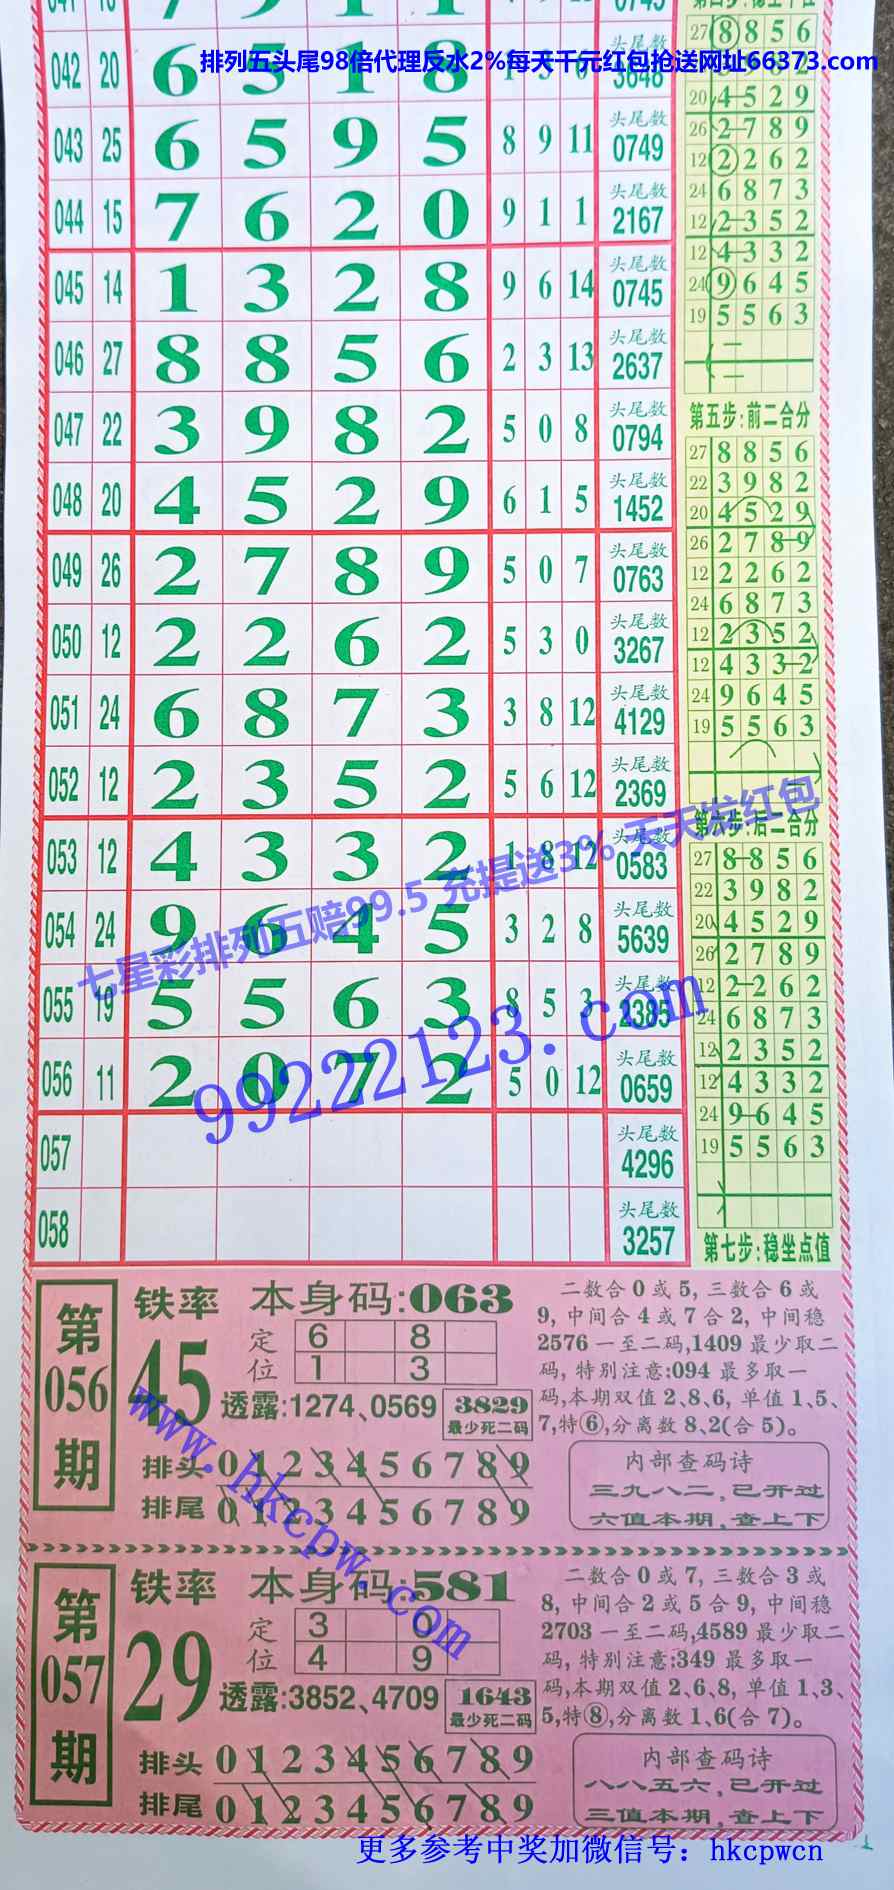 排列五头尾98倍代理反水2%每天千元红包抢送网址66373.com
042 20 6 5 1 8 1 5 6 头尾数 3648
043 25 6 5 9 5 8 9 11 头尾数 0749
044 15 7 6 2 0 9 1 1 头尾数 2167
045 14 1 3 2 8 9 6 14 头尾数 0745
046 27 8 8 5 6 2 3 13 头尾数 2637
047 22 3 9 8 2 5 0 8 头尾数 0794
048 20 4 5 2 9 6 1 5 头尾数 1452
049 26 2 7 8 9 5 0 7 头尾数 0763
050 12 2 2 6 2 5 3 0 头尾数 3267
051 24 6 8 7 3 3 8 12 头尾数 4129
052 12 2 3 5 2 5 6 12 头尾数 2369
053 12 4 3 3 2 1 8 12 头尾数 0583
054 24 9 6 4 5 3 2 8 头尾数 5639
055 19 5 5 6 3 8 5 3 头尾数 2385
056 11 2 0 7 2 5 0 12 头尾数 0659
057 头尾数 4296
058 头尾数 3257
27 8 8 5 6
20 4 5 2 9
26 2 7 8 9
12 2 2 6 2
24 6 8 7 3
12 2 3 5 2
12 4 3 3 2
24 9 6 4 5
19 5 5 6 3
第五步:前二合分
27 8 8 5 6
22 3 9 8 2
20 4 5 2 9
26 2 7 8 9
12 2 2 6 2
24 6 8 7 3
12 2 3 5 2
12 4 3 3 2
24 9 6 4 5
19 5 5 6 3
第六步:后二合分
27 8 8 5 6
22 3 9 8 2
20 4 5 2 9
26 2 7 8 9
12 2 2 6 2
24 6 8 7 3
12 2 3 5 2
12 4 3 3 2
24 9 6 4 5
19 5 5 6 3
第七步:稳坐点值
七星彩排列五赔99.5 充提送3% 天天发红包
99222123.com
第056期
铁率 45
本身码:063
定位
6 8
1 3
透露:1274、0569
3829
最少死二码
排头 0 1 2 3 4 5 6 7 8 9
排尾 0 1 2 3 4 5 6 7 8 9
二数合0或5,三数合6或
9,中间合4或7合2,中间稳
2576一至二码,1409最少取二
码,特别注意:094最多取一
码,本期双值2、8、6,单值1、5、
7,特⑥,分离数8、2(合5)。
内部查码诗
三九八二,已开过
六值本期,查上下
www.hkcpw.com
第057期
铁率 29
本身码:581
定位
3 0
4 9
透露:3852、4709
1643
最少死二码
排头 0 1 2 3 4 5 6 7 8 9
排尾 0 1 2 3 4 5 6 7 8 9
二数合0或7,三数合3或
8,中间合2或5合9,中间稳
2703一至二码,4589最少取二
码,特别注意:349最多取一
码,本期双值2、6、8,单值1、3、
5,特⑧,分离数1、6(合7)。
内部查码诗
八八五六,已开过
三值本期,查上下
更多参考中奖加微信号：hkcpwcn